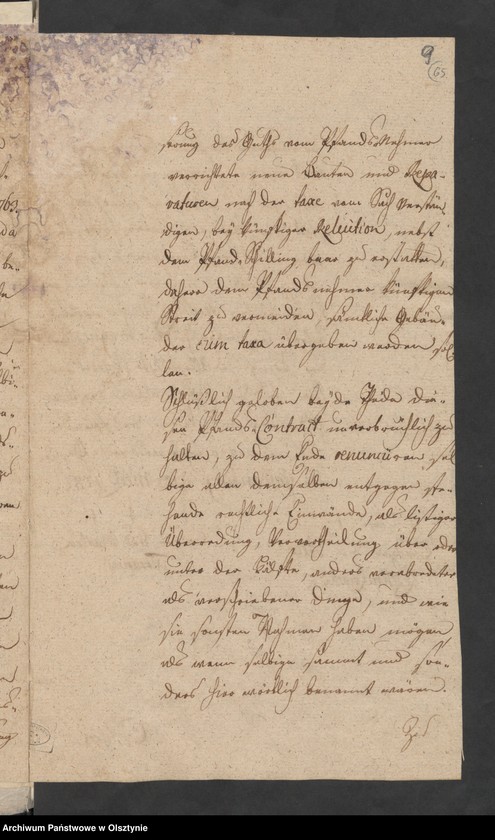 9
65
serung des Guths vom Pfands Nehmer
verrichtete neue Bauten und Repa-
raturen nach der taxe vom Sach verstän-
digen, bey künftiger Reluition, nebst
dem Pfand-Schilling baar zu erstatten,
dahero dem Pfandsnehmer künftigen
Streit zu vermeiden, sämtliche Gebäu-
der cum taxa übergeben werden sol-
len.
Schlüßlich geloben beyde Theile die-
sen Pfands-Contract unverbrüchlich zu
halten, zu dem Ende renunciiren sel-
bige allen demselben entgegen ste-
hende rechtliche Einwände, als listiger
Überredung, Vervortheilung über oder
unter der Hälfte, anders verabredeter
als verschriebener Dinge, und wie
sie sonsten Nahmen haben mögen,
als wenn selbige sammt und son-
ders hier wörtlich benannt wären.
Zu
Archiwum Państwowe w Olsztynie